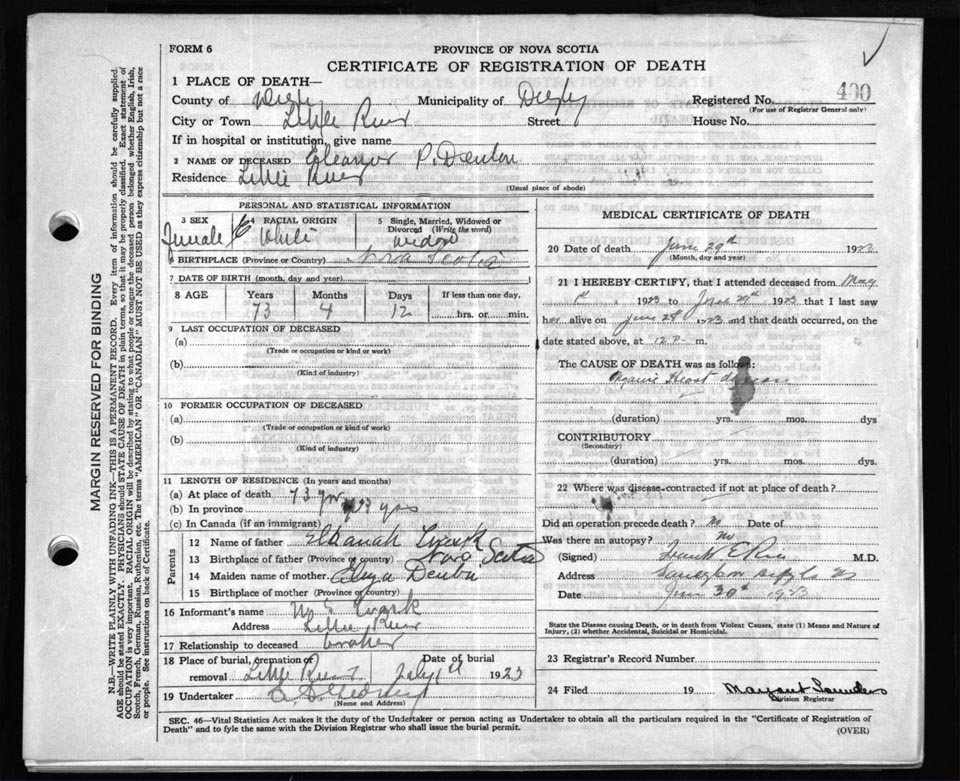 FORM 6
PROVINCE OF NOVA SCOTIA
CERTIFICATE OF REGISTRATION OF DEATH
1 PLACE OF DEATH—
County of Digby Municipality of Digby Registered No. 400
(For use of Registrar General only)
City or Town Little River Street House No.
If in hospital or institution, give name
2 NAME OF DECEASED Eleanor P. Denton
Residence Little River
(Usual place of abode)
PERSONAL AND STATISTICAL INFORMATION
3 SEX Female
4 RACIAL ORIGIN White
5 Single, Married, Widowed or Divorced (Write the word) widow
6 BIRTHPLACE (Province or Country) Nova Scotia
7 DATE OF BIRTH (month, day and year)
8 AGE Years Months Days If less than one day,
73 4 12 hrs. or min.
9 LAST OCCUPATION OF DECEASED
(a)
(Trade or occupation or kind or work)
(b)
(Kind of industry)
10 FORMER OCCUPATION OF DECEASED
(a)
(Trade or occupation or kind of work)
(b)
(Kind of industry)
11 LENGTH OF RESIDENCE (In years and months)
(a) At place of death 73 yrs
(b) In province 73 yrs
(c) In Canada (if an immigrant)
Parents
12 Name of father Elkanah
13 Birthplace of father (Province or country) Nova Scotia
14 Maiden name of mother Denton
15 Birthplace of mother (Province or country)
16 Informant's name
Address Little River
17 Relationship to deceased brother
18 Place of burial, cremation or removal Little River Date of burial July 1st 1923
19 Undertaker
(Name and Address)
MEDICAL CERTIFICATE OF DEATH
20 Date of death June 29th 192
(Month, day and year)
21 I HEREBY CERTIFY, that I attended deceased from May
1923 to June 29th 1923 that I last saw
her alive on June 29 1923 and that death occurred, on the
date stated above, at 12 P. m.
The CAUSE OF DEATH was as follows:
Organic Heart disease
(duration) yrs. mos. dys
CONTRIBUTORY
(Secondary)
(duration) yrs. mos. dys.
22 Where was disease contracted if not at place of death?
Did an operation precede death? no Date of
Was there an autopsy? no
(Signed) Frank E Rice M.D.
Address Sandy Cove Digby Co NS
Date June 30th 1923
State the Disease causing Death, or in death from Violent Causes, state (1) Means and Nature of Injury, (2) whether Accidental, Suicidal or Homicidal.
23 Registrar's Record Number
24 Filed 19 Margaret Saunders
Division Registrar
SEC. 46—Vital Statistics Act makes it the duty of the Undertaker or person acting as Undertaker to obtain all the particulars required in the "Certificate of Registration of
Death" and to fyle the same with the Division Registrar who shall issue the burial permit. (OVER)
MARGIN RESERVED FOR BINDING
N.B.—WRITE PLAINLY WITH UNFADING INK—THIS IS A PERMANENT RECORD. Every item of information should be carefully supplied.
AGE should be stated EXACTLY. PHYSICIANS should STATE CAUSE OF DEATH in plain terms, so that it may be properly classified. Exact statement of
OCCUPATION is very important. RACIAL ORIGIN will be described by stating to what people or tongue the deceased person belonged whether English, Irish,
Scotch, French, German, Russian, Ruthenian, etc. The terms "AMERICAN" OR "CANADIAN" MUST NOT BE USED as they express citizenship but not a race
or people. See instructions on back of Certificate.